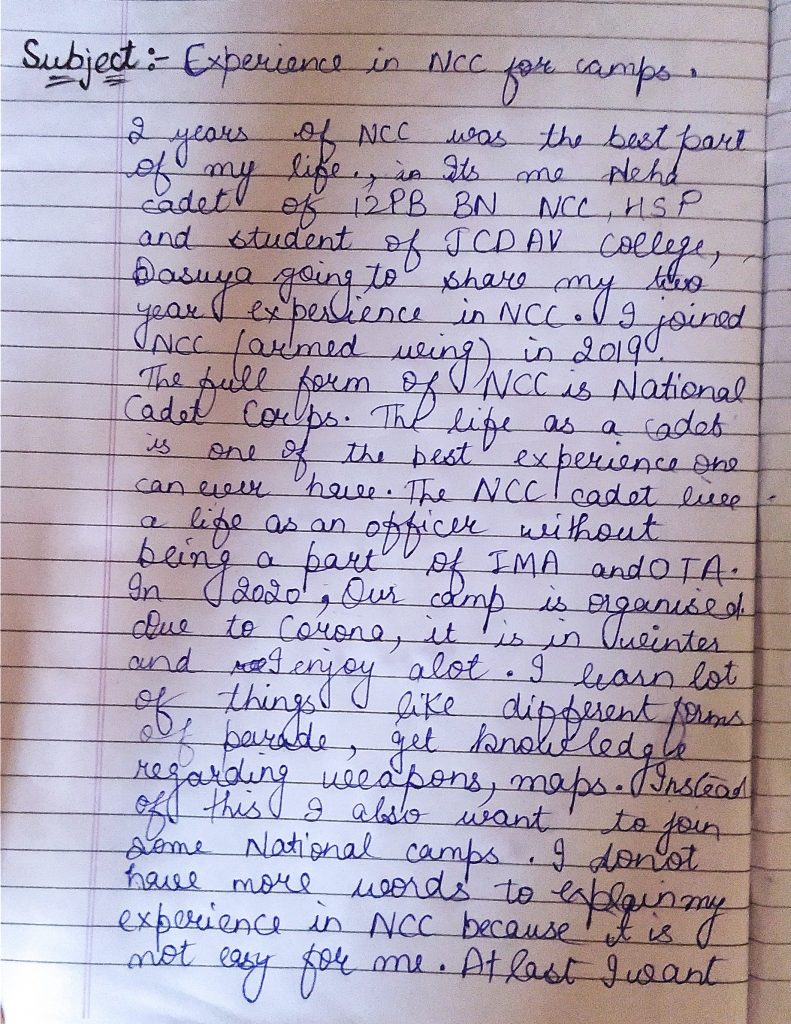 Subject :- Experience in NCC for camps.
2 years of NCC was the best part
of my life., Its me Neha
cadet of 12PB BN NCC, HSP
and student of JCDAV College,
Dasuya going to share my two
year experience in NCC. I joined
NCC (armed wing) in 2019.
The full form of NCC is National
Cadet Corps. The life as a cadet
is one of the best experience one
can ever have. The NCC cadet live
a life as an officer without
being a part of IMA and OTA.
In 2020, Our camp is organised.
due to Corona, it is in winter
and I enjoy alot. I learn lot
of things like different forms
of parade, get knowledge
regarding weapons, maps. Instead
of this I also want to join
some National camps. I donot
have more words to explain my
experience in NCC because it is
not easy for me. At last I want